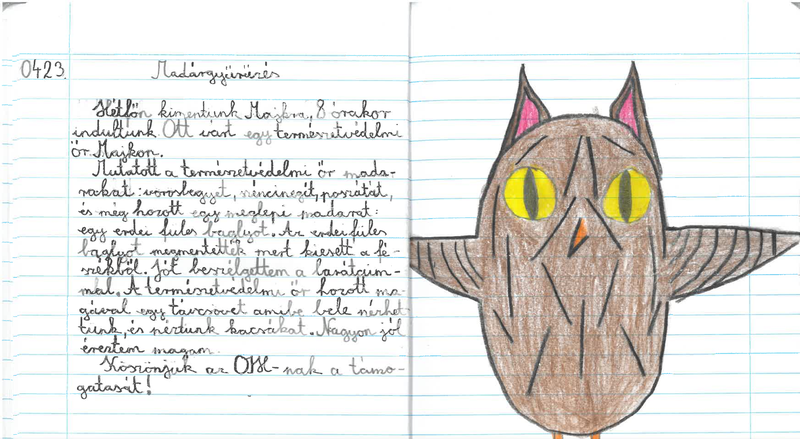 0423. Madárgyűrűzés
Hétfőn kimentunk Majkra, 8 órakor
indultunk. Ott várt egy természetvédelmi
őr Majkon.
Mutatott a természetvédelmi őr mada-
rakat: vörösbegyet, széncinegét, poszátát,
és még hozott egy meglepi madarat:
egy erdei fules baglyot. Az erdei füles
baglyot megmentették mert kiesett a fé-
szekből. Jót beszélgettem a barátaim-
mal. A természetvédelmi őr hozott ma-
gával egy távcsövet amibe bele nézhet
tünk, és néztünk kacsákat. Nagyon jól
éreztem magam.
Köszönjük az -nak a támo-
gatását!